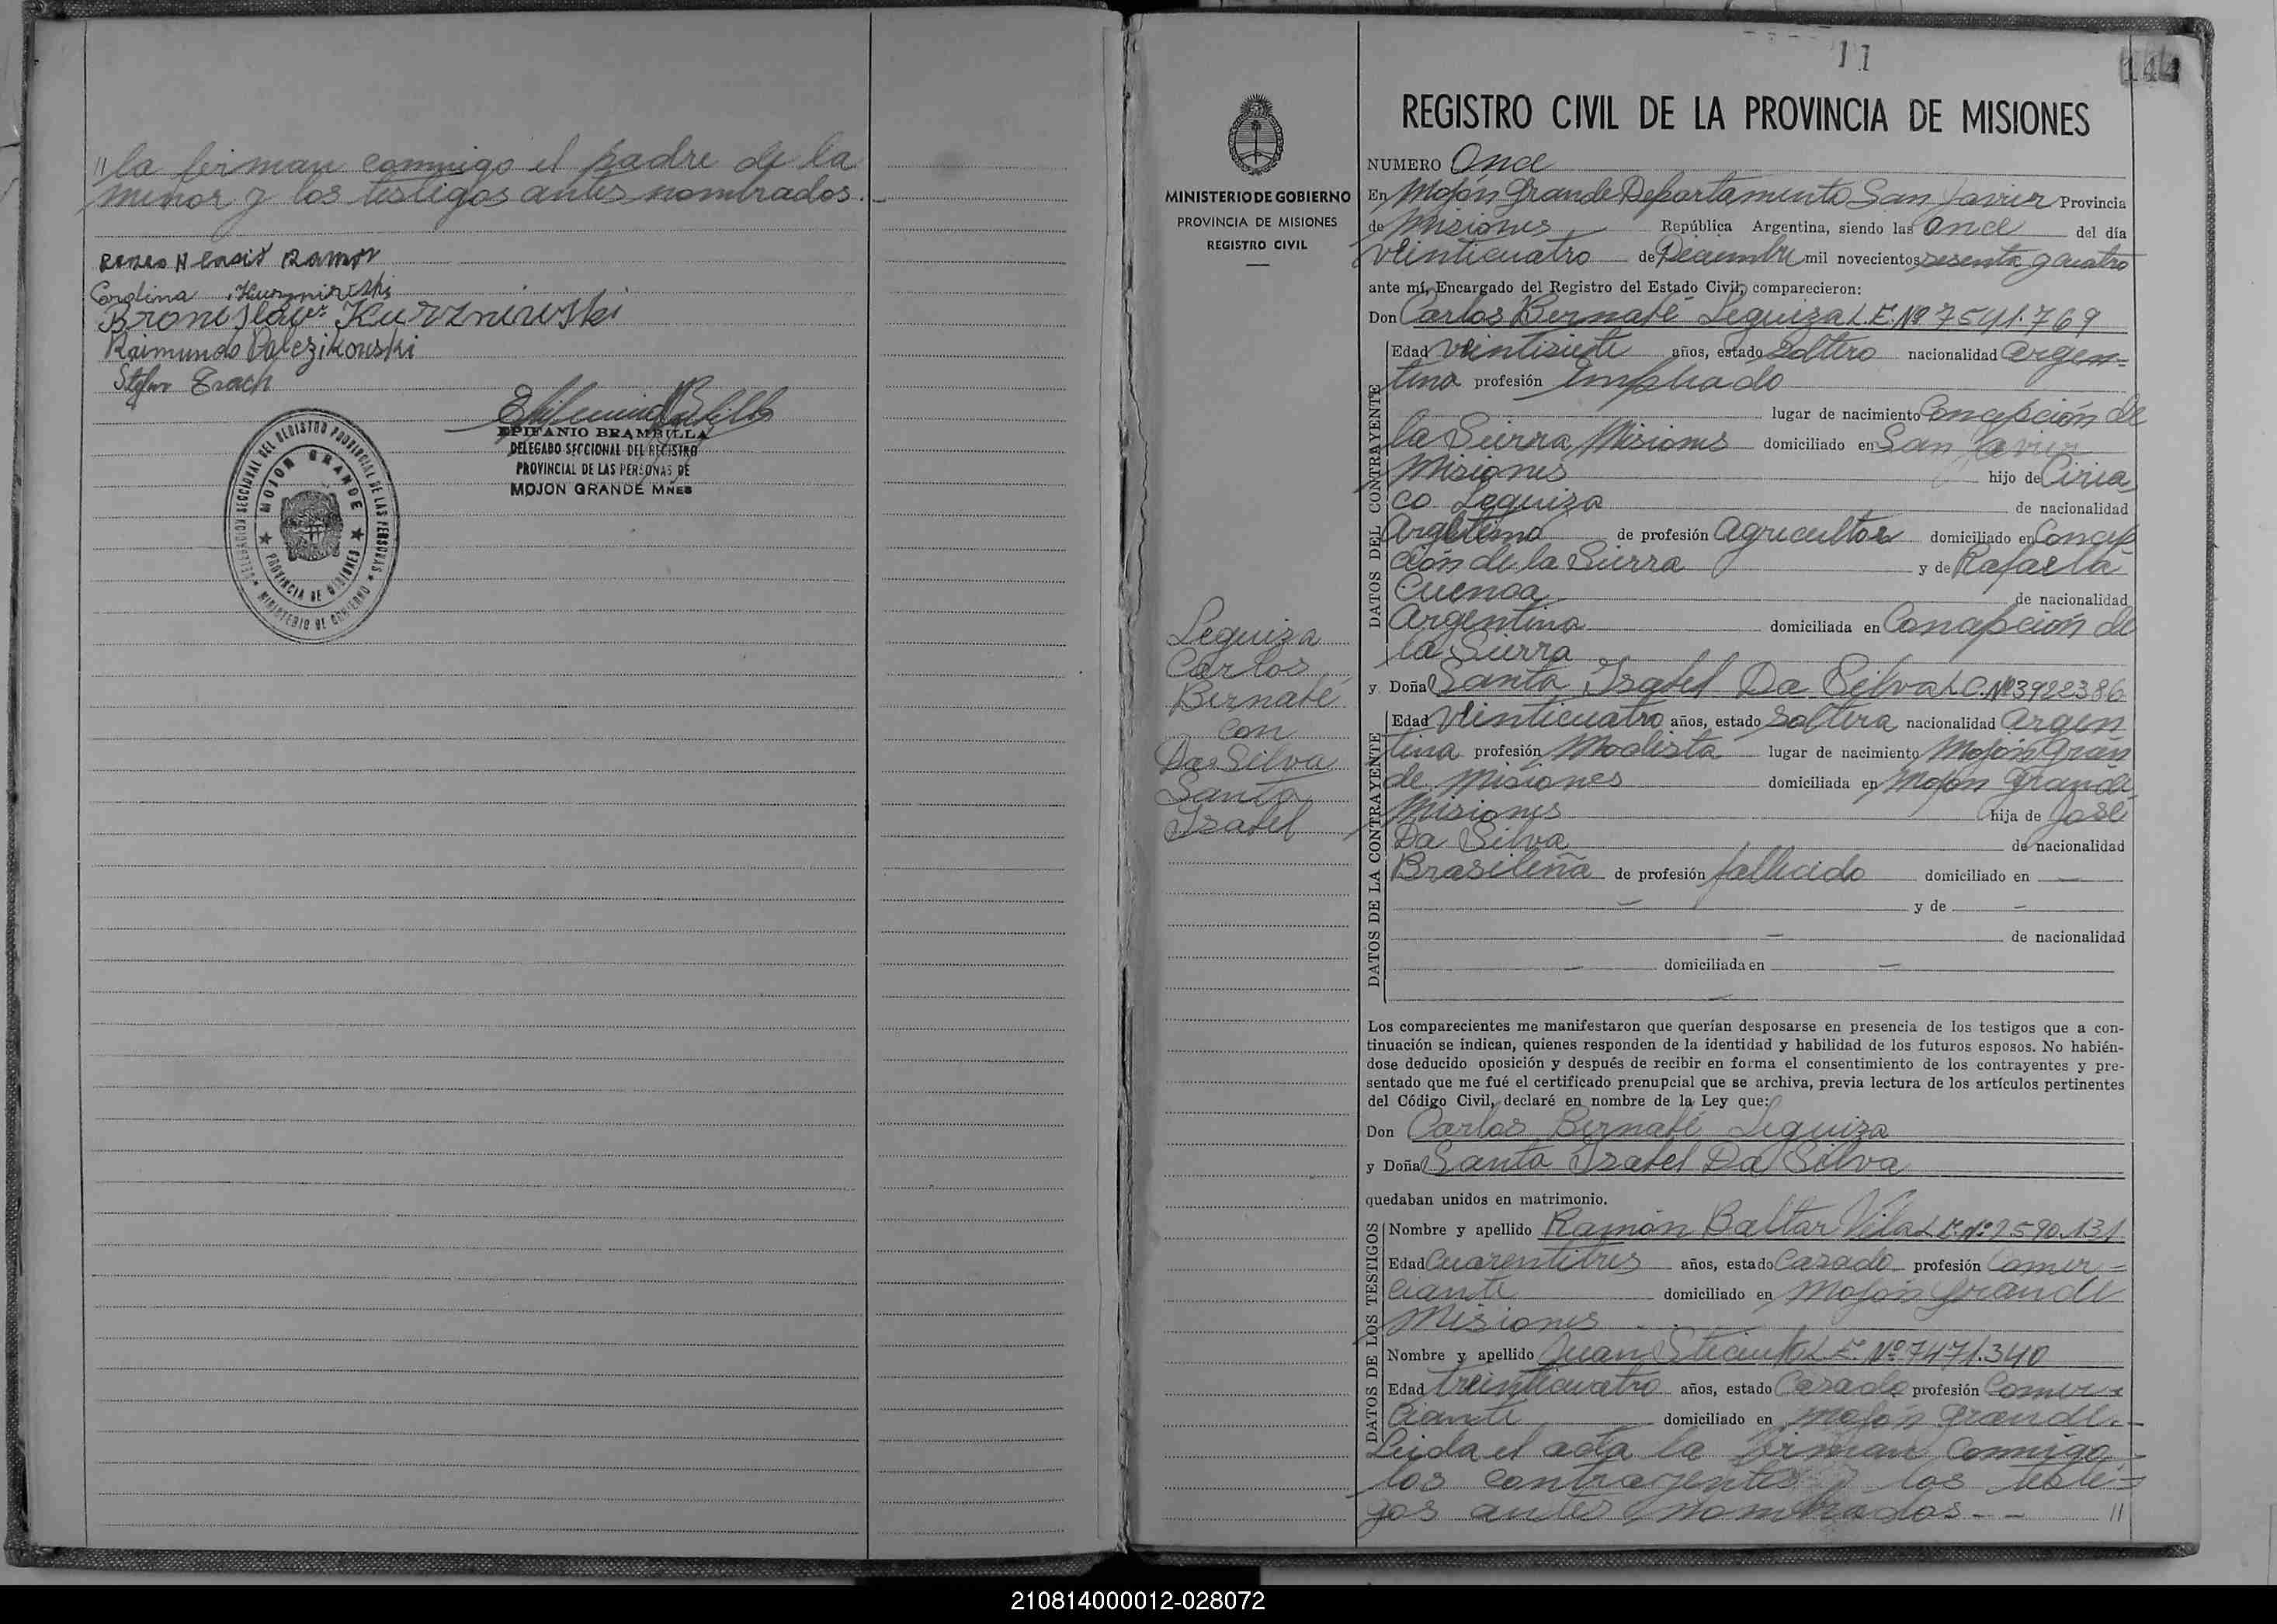 " la firman conmigo el padre de la
menor y los testigos antes nombrados.-
Ramor
Cordina Kurzniriski
Bronislava Kurzniewski
Raimundo
Stefan Trach
EPIFANIO BRAMBILLA
DELEGADO SECCIONAL DEL REGISTRO
PROVINCIAL DE LAS PERSONAS DE
MOJON GRANDE MNES
DELEGACION SECCIONAL DEL REGISTRO PROVINCIAL DE LAS PERSONAS
MOJON GRANDE
PROVINCIA DE MISIONES
MINISTERIO DE GOBIERNO
11
144
MINISTERIO DE GOBIERNO
PROVINCIA DE MISIONES
REGISTRO CIVIL
Leguiza
Carlos
Bernabé
con
Da Silva
Santa
Isabel
REGISTRO CIVIL DE LA PROVINCIA DE MISIONES
NUMERO Once
En Mojón Grande Departamento San Javier Provincia
de Misiones República Argentina, siendo las once del día
veinticuatro de Diciembre mil novecientos sesenta y cuatro
ante mí, Encargado del Registro del Estado Civil, comparecieron:
Don Carlos Bernabé Leguiza L.E. Nº 7541.769
DATOS DEL CONTRAYENTE
Edad veintisiete años, estado soltero nacionalidad argen-
tina profesión Empleado
lugar de nacimiento Concepción de
la Sierra, Misiones domiciliado en San Javier
Misiones hijo de Ciria
co Leguiza de nacionalidad
Argentina de profesión Agricultor domiciliado en Concep
ción de la Sierra y de Rafaela
Cuenca de nacionalidad
Argentina domiciliada en Concepción de
la Sierra
y Doña Santa Isabel Da Silva L.C. Nº 3922386
DATOS DE LA CONTRAYENTE
Edad veinticuatro años, estado soltera nacionalidad argen
tina profesión Modista lugar de nacimiento Mojón Gran
de Misiones domiciliada en Mojón Grande
Misiones hija de José
Da Silva de nacionalidad
Brasileña de profesión fallecido domiciliado en —
— y de —
— de nacionalidad
— domiciliada en —
—
Los comparecientes me manifestaron que querían desposarse en presencia de los testigos que a con-
tinuación se indican, quienes responden de la identidad y habilidad de los futuros esposos. No habién-
dose deducido oposición y después de recibir en forma el consentimiento de los contrayentes y pre-
sentado que me fué el certificado prenupcial que se archiva, previa lectura de los artículos pertinentes
del Código Civil, declaré en nombre de la Ley que:
Don Carlos Bernabé Leguiza
y Doña Santa Isabel Da Silva
quedaban unidos en matrimonio.
DATOS DE LOS TESTIGOS
Nombre y apellido Ramón Baltar Vila L.E. Nº 7590.131
Edad cuarentitres años, estado casado profesión Comer-
ciante domiciliado en Mojón Grande
Misiones.
Nombre y apellido Juan L.E. Nº 7471.340
Edad treinticuatro años, estado Casado profesión Comer-
ciante domiciliado en Mojón Grande.-
Leida el acta la firman conmigo
los contrayentes y los testi-
gos antes nombrados.- - "
210814000012-028072